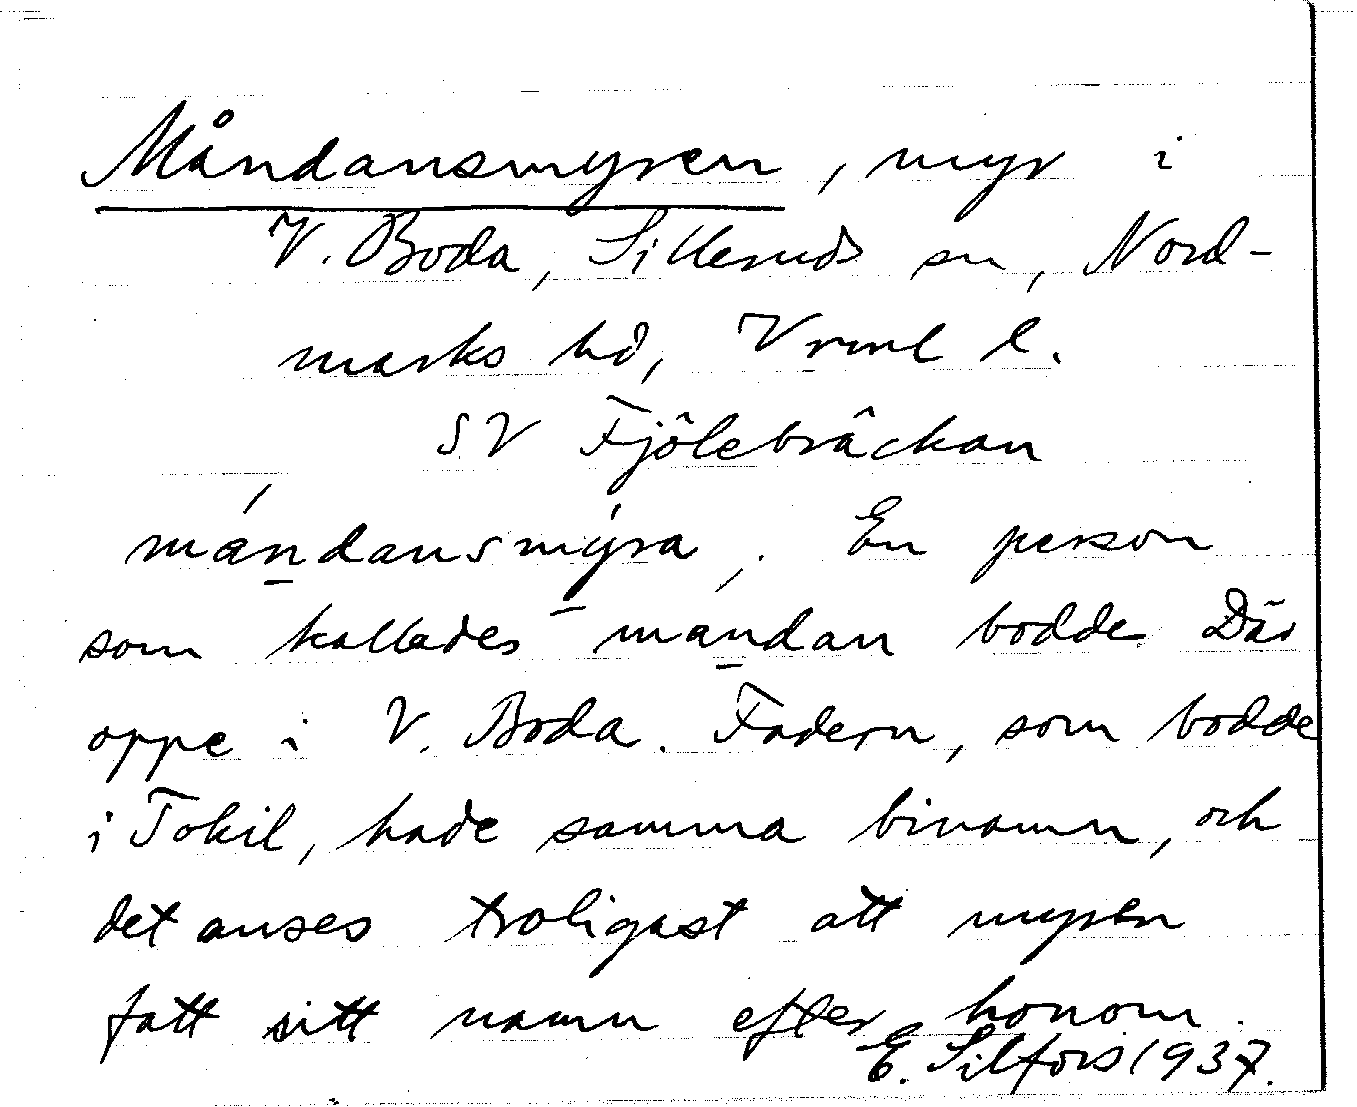 Måndansmyren, myr i
V. Boda, Silleruds sn, Nord-
marks hd, Vrml l.
SV Fjölebräckan
mándansmýra. En person
som kallades mandan bodde Där
oppe i V. Boda. Fadern, som bodde
i Tokil, hade samma binamn, och
det anses troligast att myren
fatt sitt namn efter honom.
E. Silfors 1937.